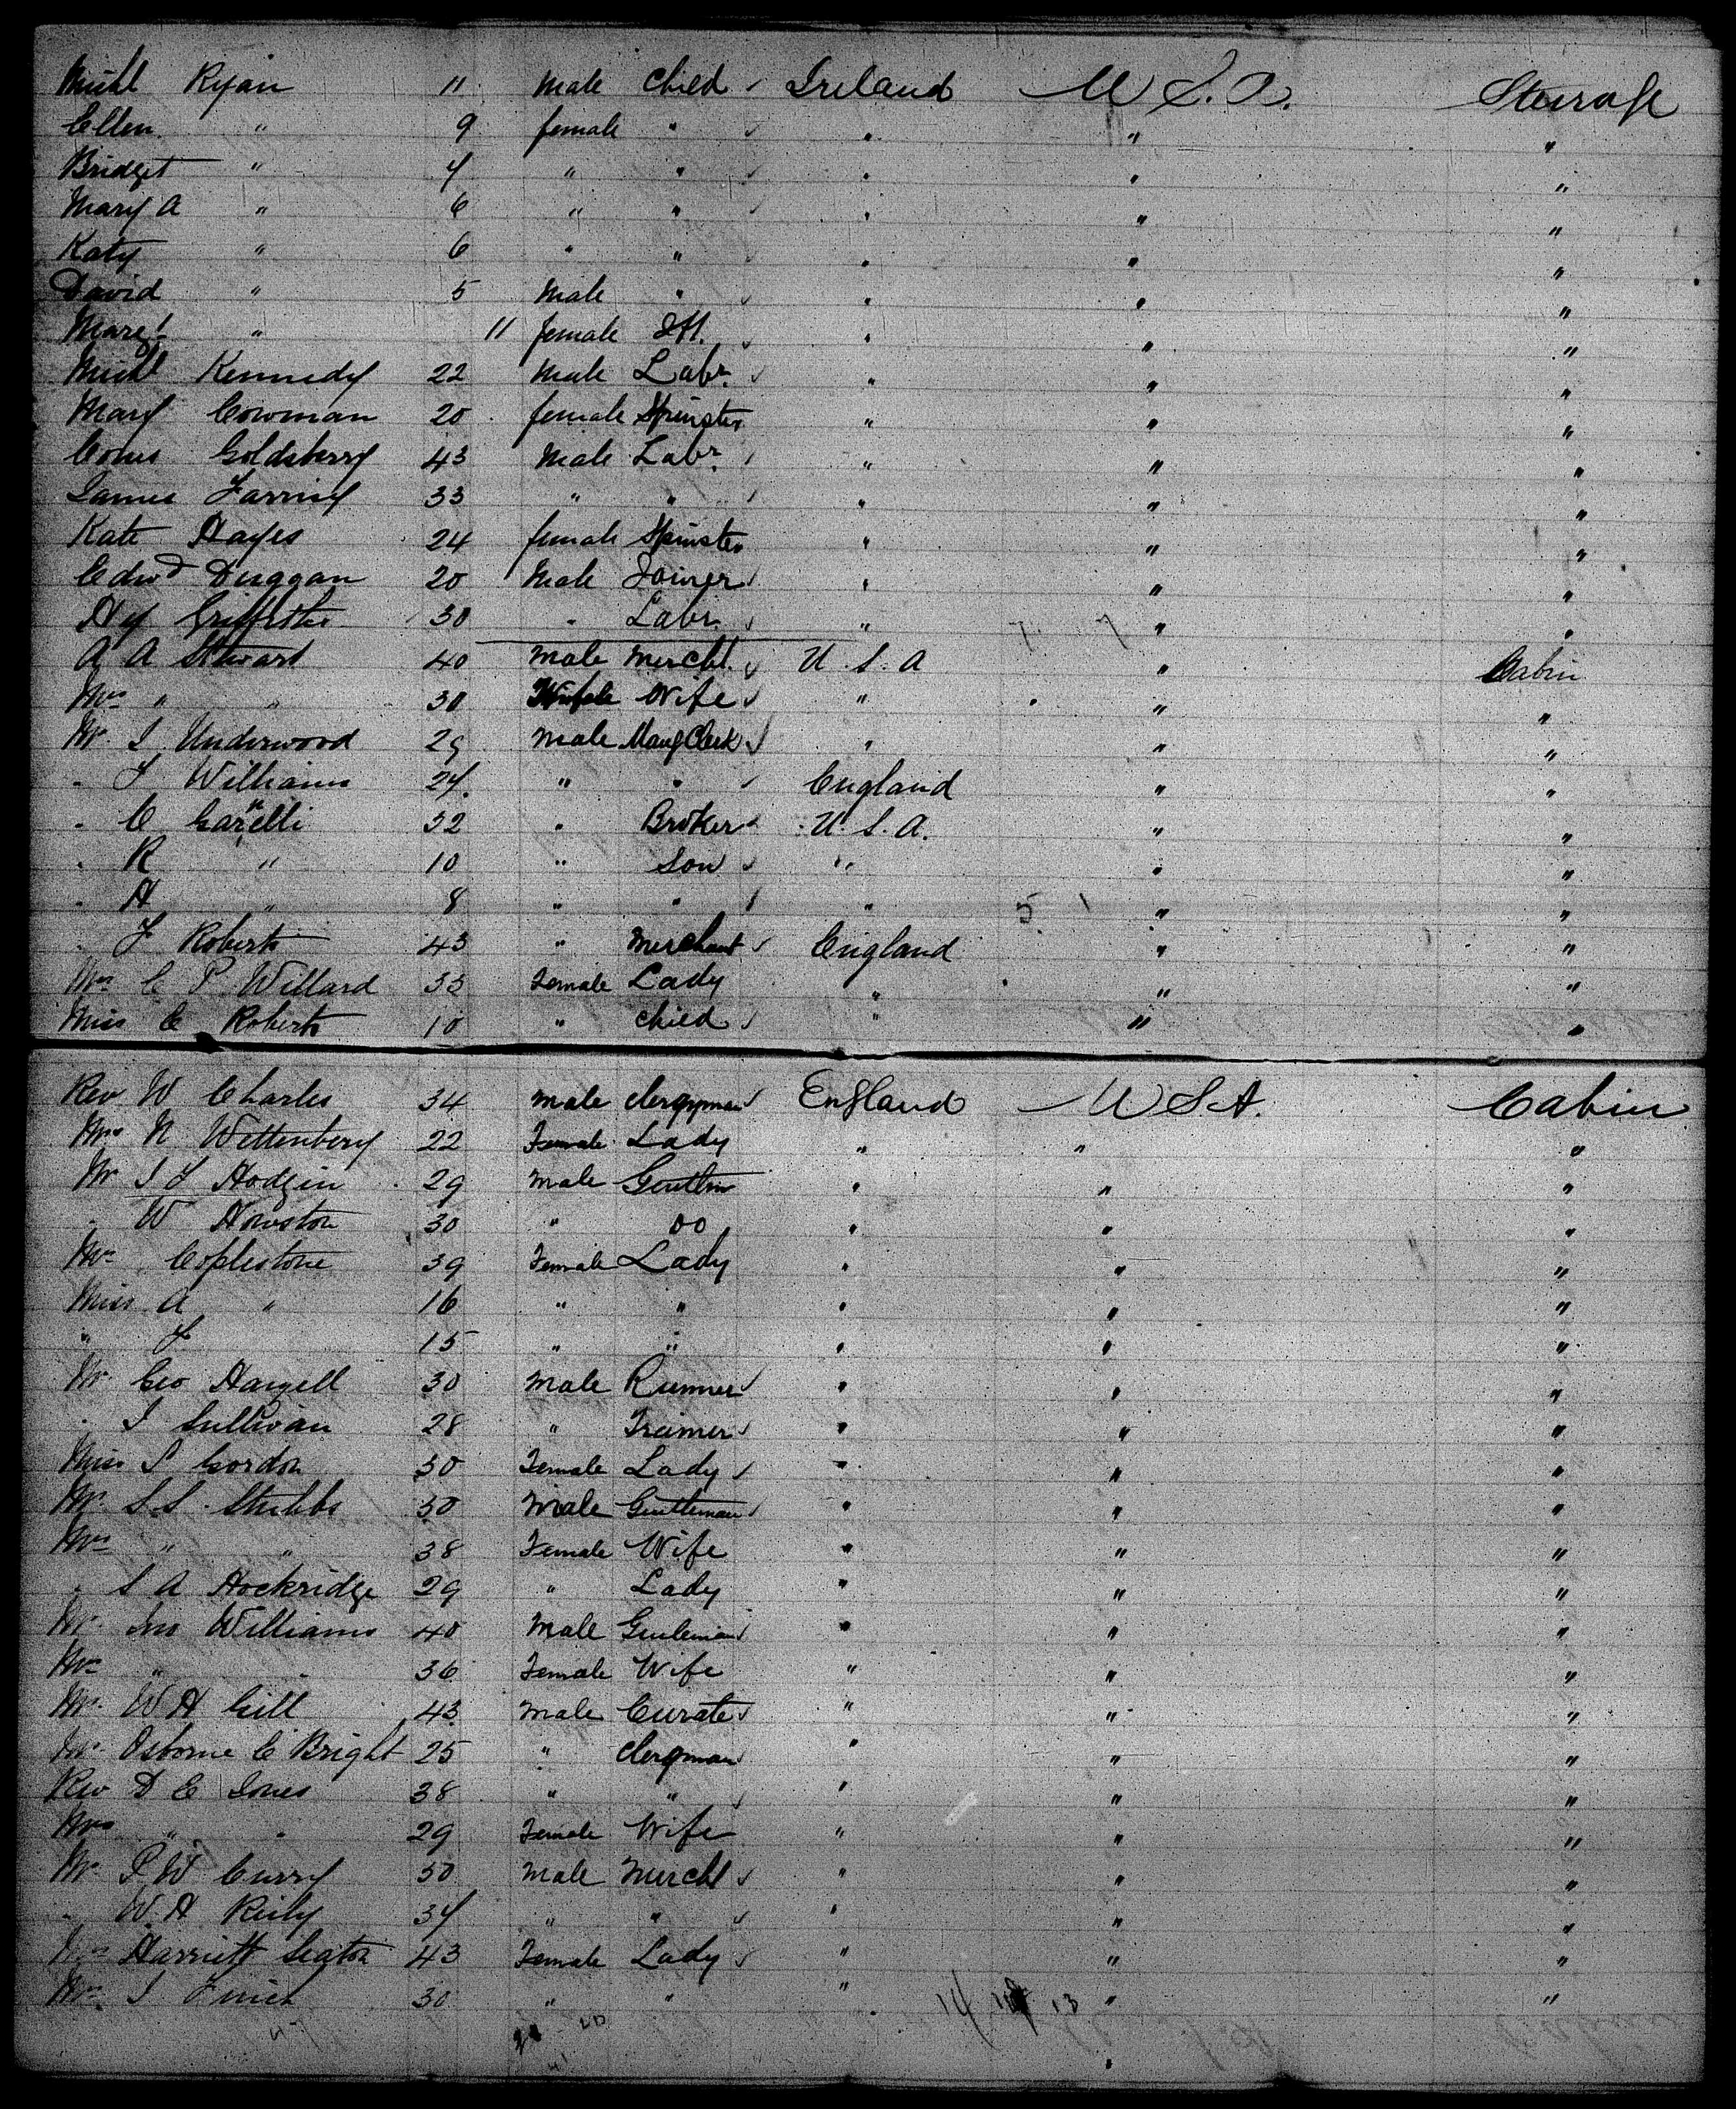 Michl Ryan 11 Male Child Ireland U S. A. Steerage
Ellen " 9 female " " " "
Bridget " 4 " " " " "
Mary A " 6 " " " " "
Katy " 6 " " " " "
David " 5 Male " " " "
Margt " 11 female Inf. " " "
Michl Kennedy 22 Male Labr. " " "
Mary Cowman 20 female Spinster " " "
Goldsberry 43 Male Labr. " " "
James 33 " " " " "
Kate Hayes 24 female Spinster " " "
Edwd Duggan 20 Male Joiner " " "
Hy Griffiths 30 " Labr. " " "
A A Stewart 40 Male Mercht. U. S. A " Cabin
Mrs " " 30 Wife " " "
Mr. J Underwood 29 Male Clerk " " "
" J Williams 24 " " England " "
" C 32 " Broker U. S. A. " "
" R " 10 " Son " " "
" H " 8 " " " 5 " "
" J Roberts 43 " Merchant England " "
Mrs C P Willard 33 Female Lady " " "
Miss C Roberts 10 " Child " " "
Rev W Charles 34 Male Clergyman England U S A. Cabin
Mrs N Wettenberg 22 Female Lady " " "
Mr J J Hodgin 29 Male Gentlm " " "
" W Howston 30 " Do " " "
Mrs Coplestone 39 Female Lady " " "
Miss A " 16 " " " " "
" J 15 " " " " "
Mr Geo Hazell 30 Male Runner " " "
" J Sullivan 28 " Trainer " " "
Miss S Gordon 30 Female Lady " " "
Mr. S. S. Stubbs 50 Male Gentleman " " "
Mrs " " 38 Female Wife " " "
" S A Hockridge 29 " Lady " " "
Mr. Jno Williams 40 Male Gentleman " " "
Mrs " " 36 Female Wife " " "
Mr. W H Gill 43 Male Curate " " "
Mr. Osborne C Bright 25 " Clergman " " "
Rev D E Jones 38 " " " " "
Mrs " " 29 Female Wife " " "
Mr. P. W Curry 50 Male Mercht " " "
" W. H Reily 34 " " " " "
Mrs Harriett Seaton 43 Female Lady " " "
Mrs. J Finch 30 " " " 14 13 " "